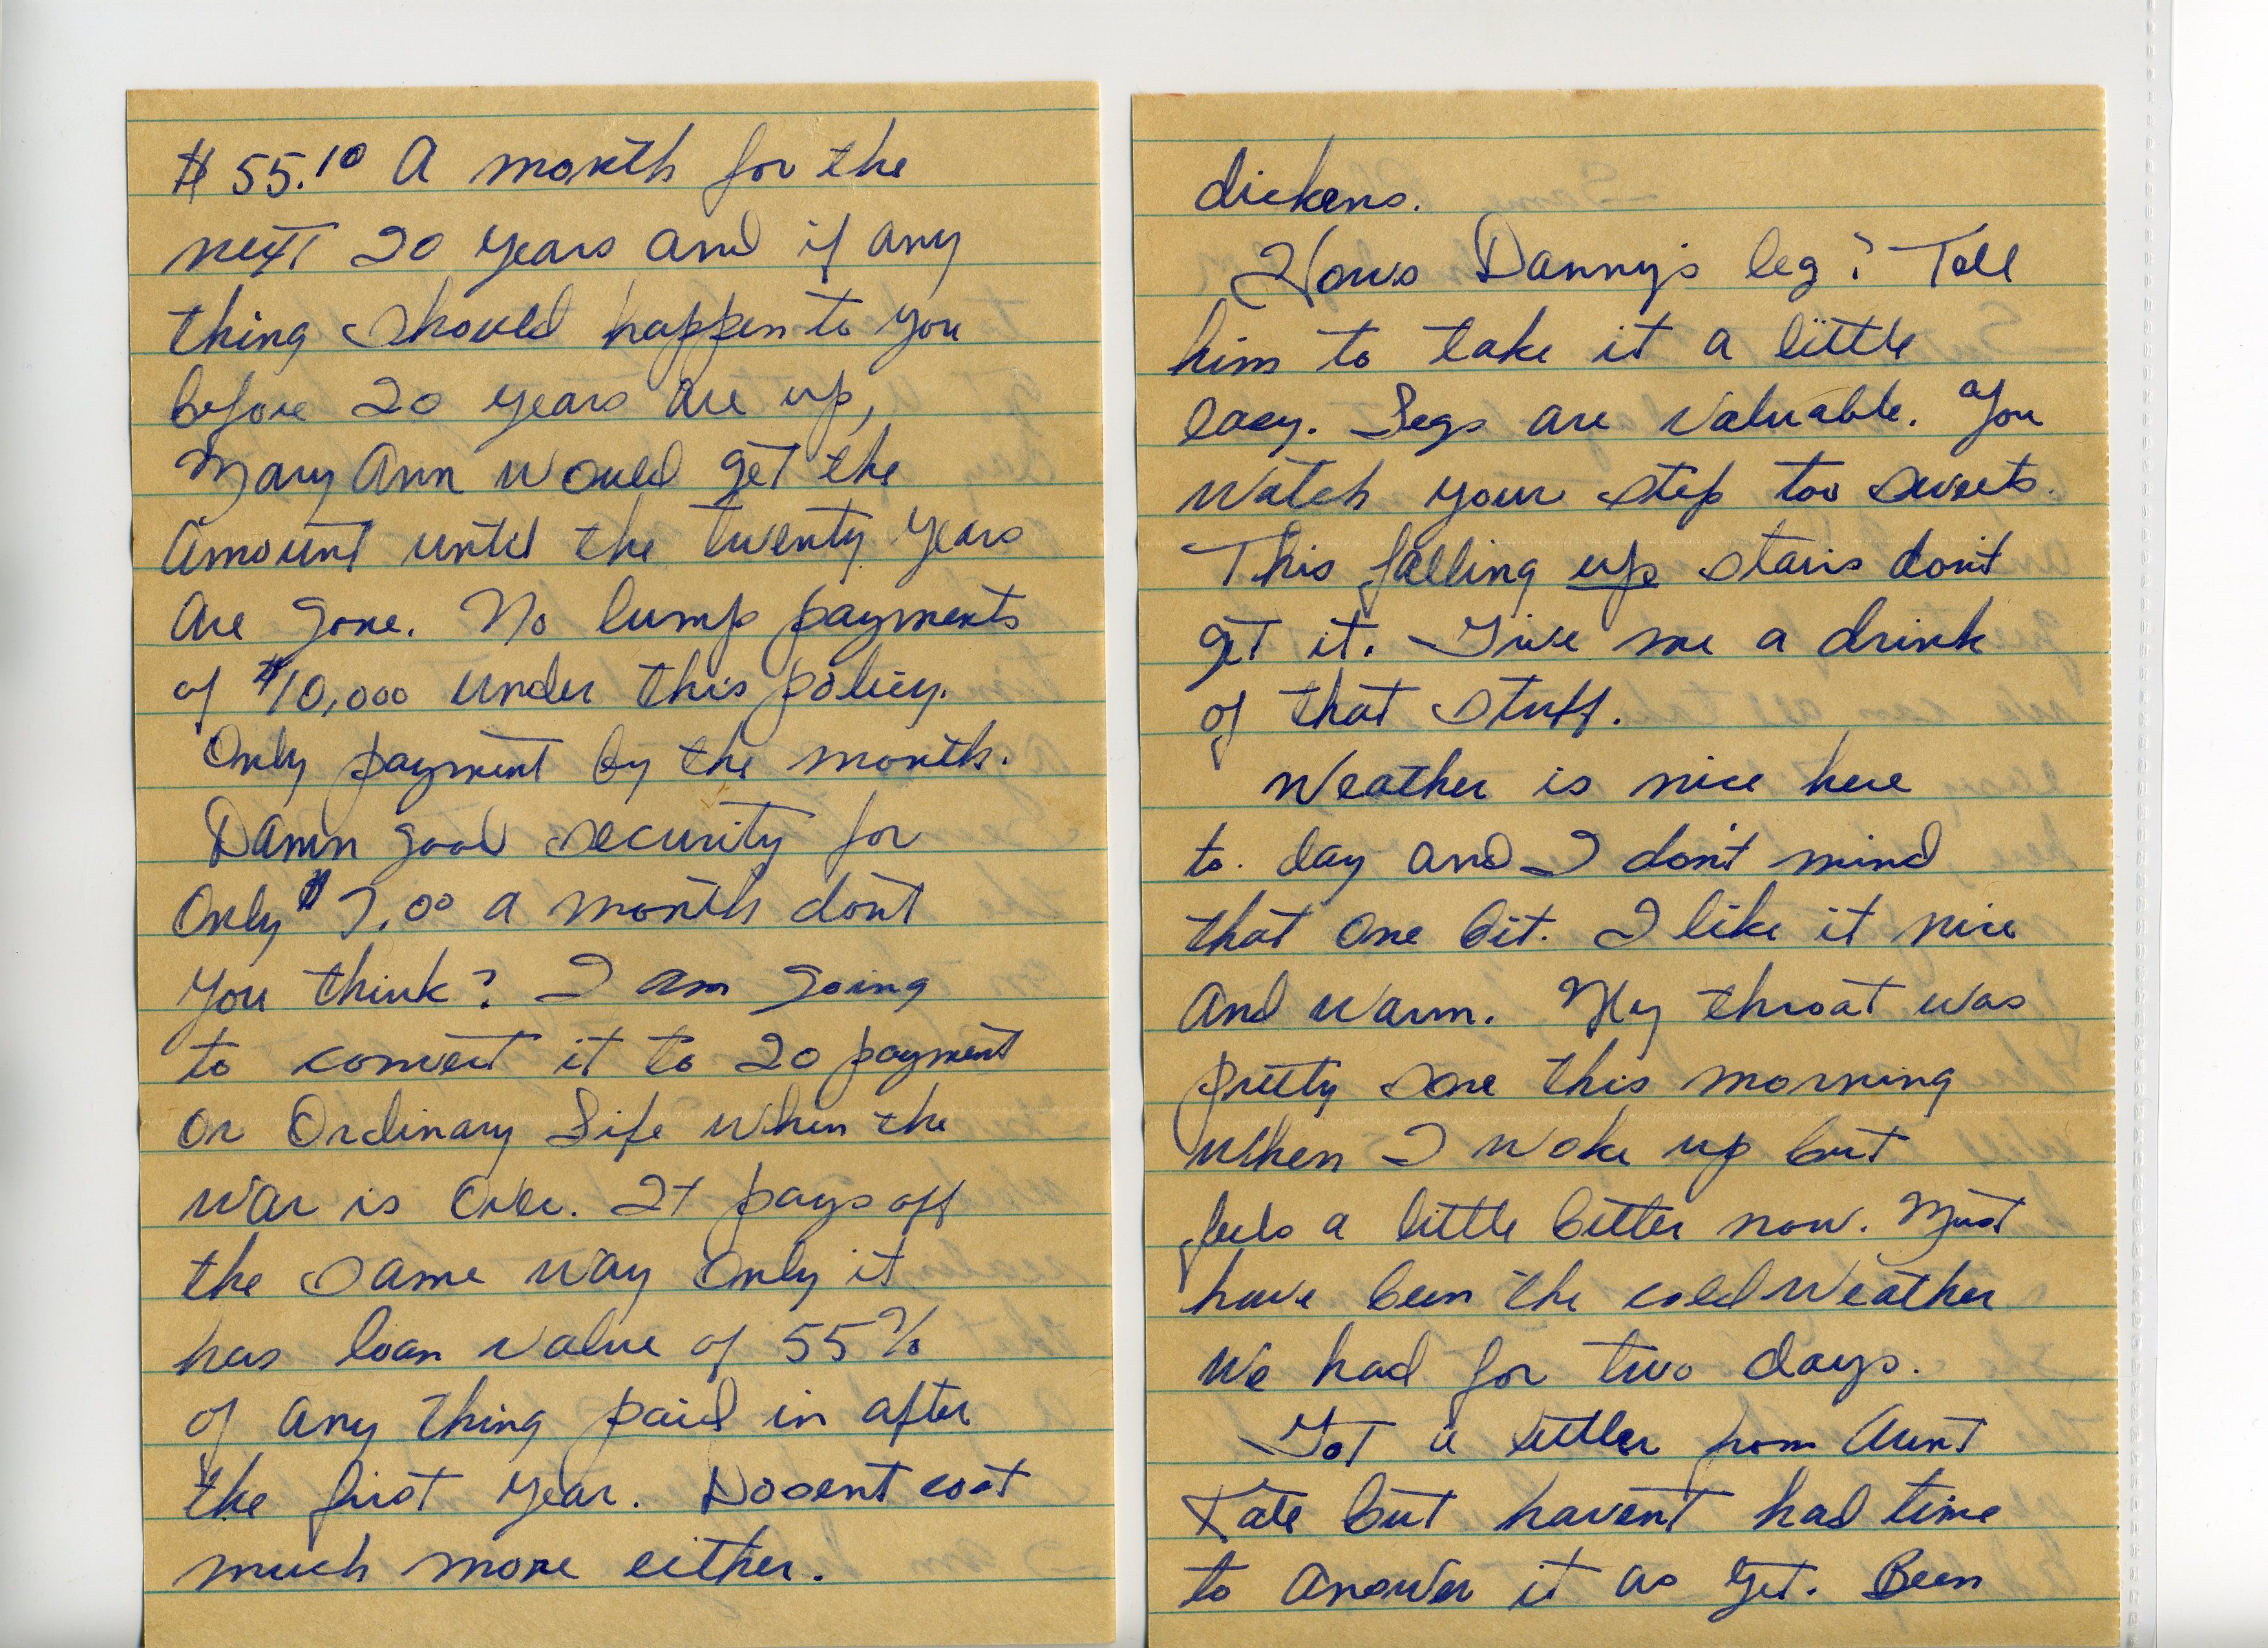 $55.10 A month for the
next 20 years and if any
thing should happen to you
before 20 years are up,
Mary Ann would get the
amount until the twenty years
are gone. No lump payments
of $10,000 under this policy.
Only payment by the month.
Damn good security for
Only $7.00 a month dont
you think? I am going
to convert it to 20 payment
or Ordinary Life when the
war is over. It pays off
the same way only it
has loan value of 55%
of any thing paid in after
the first year. Dosent cost
much more either.
dickens.
Hows Danny's leg? Tell
him to take it a little
easy. Legs are valuable. You
watch your step too sweets.
This falling up stairs don't
get it. Give me a drink
of that stuff.
Weather is nice here
to. day and I don't mind
that one bit. I like it nice
and warm. My throat was
pretty sore this morning
when I woke up but
feels a little better now. Must
have been the cold weather
we had for two days.
Got a letter from Aunt
Kate but haven't had time
to answer it as yet. Been